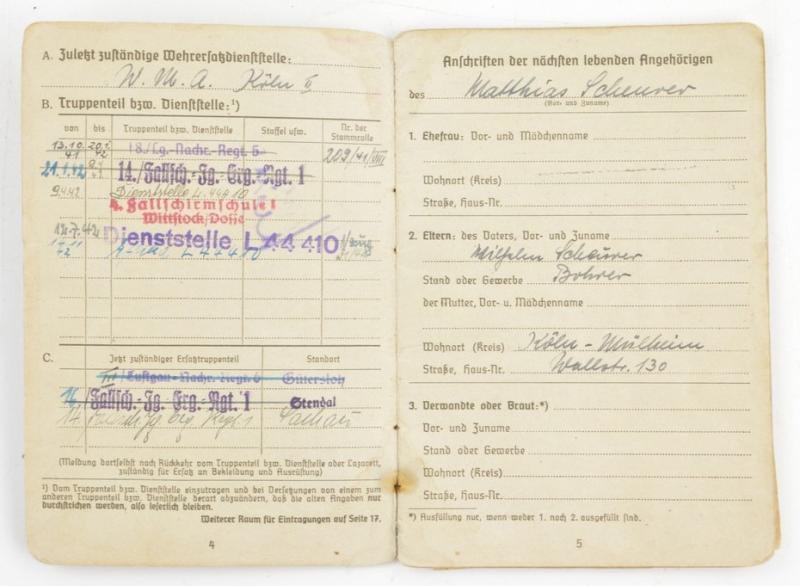 A. Zuletzt zuständige Wehrersatzdienststelle:
W. M. A. Köln II
B. Truppenteil bzw. Dienststelle:¹)
von bis Truppenteil bzw. Dienststelle Staffel usw. Nr. der Stammrolle
13.10. 41 20.1. 42 18./Lg.-Nachr.-Regt. 6 209/41/VIII
21.1.42 14./Fallsch.-Jg.-Erg.-Rgt. 1
9.4.42 Dienststelle L 44410
4. Fallschirmschule I
Wittstock/Dosse
12.7.42 Dienststelle L 44 410
L 44410
C. Jetzt zuständiger Ersatztruppenteil Standort
Luftgau-Nachr.-Regt. 6 Gütersloh
14. Fallsch.-Jg. Erg.-Rgt. 1 Stendal
14.
(Meldung dortselbst nach Rückkehr vom Truppenteil bzw. Dienststelle oder Lazarett,
zuständig für Ersatz an Bekleidung und Ausrüstung)
¹) Vom Truppenteil bzw. Dienststelle einzutragen und bei Versetzungen von einem zum
anderen Truppenteil bzw. Dienststelle derart abzuändern, daß die alten Angaben nur
durchstrichen werden, also leserlich bleiben.
Weiterer Raum für Eintragungen auf Seite 17.
4
Anschriften der nächsten lebenden Angehörigen
des Matthias Scheurer
(Vor- und Zuname)
1. Ehefrau: Vor- und Mädchenname
Wohnort (Kreis)
Straße, Haus-Nr.
2. Eltern: des Vaters, Vor- und Zuname
Wilhelm Scheurer
Stand oder Gewerbe Bohrer
der Mutter, Vor- u. Mädchenname
Wohnort (Kreis) Köln-Mülheim
Straße, Haus-Nr. Wallstr. 130
3. Verwandte oder Braut:*)
Vor- und Zuname
Stand oder Gewerbe
Wohnort (Kreis)
Straße, Haus-Nr.
*) Ausfüllung nur, wenn weder 1. noch 2. ausgefüllt sind.
5